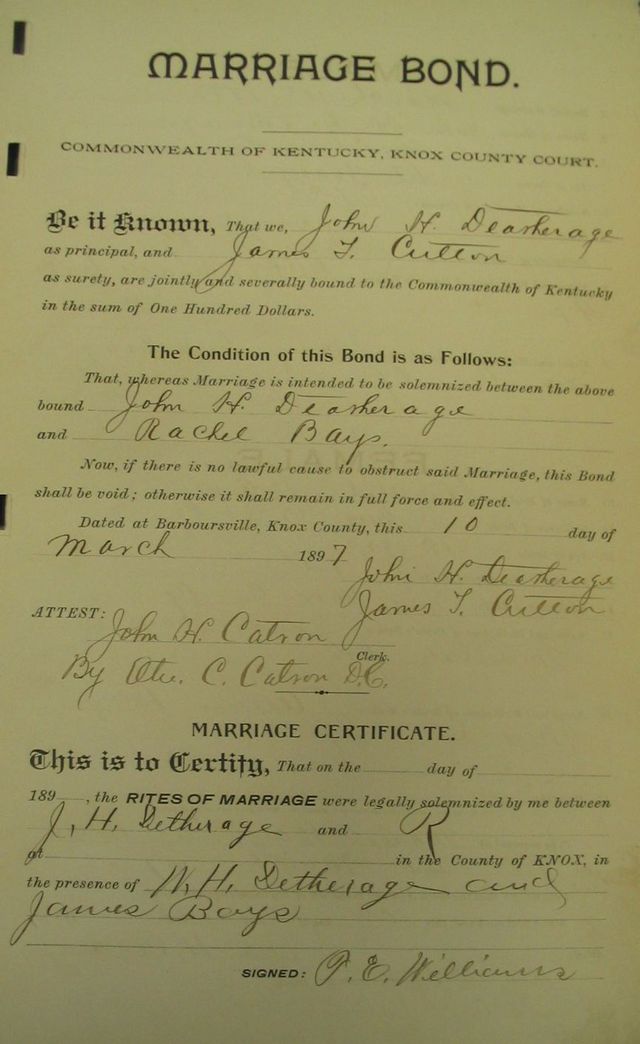 MARRIAGE BOND.
COMMONWEALTH OF KENTUCKY, KNOX COUNTY COURT.
Be it Known, That we, John H. Deatherage
as principal, and James T. Cutton
as surety, are jointly and severally bound to the Commonwealth of Kentucky
in the sum of One Hundred Dollars.
The Condition of this Bond is as Follows:
That, whereas Marriage is intended to be solemnized between the above
bound John H. Deatherage
and Rachel Bays.
Now, if there is no lawful cause to obstruct said Marriage, this Bond
shall be void; otherwise it shall remain in full force and effect.
Dated at Barboursville, Knox County, this 10 day of
March 1897
John H. Deatherage
James T. Cutton
ATTEST:
John H. Catron
Clerk.
By C. Catron D.C.
MARRIAGE CERTIFICATE.
This is to Certify, That on the day of
189 , the RITES OF MARRIAGE were legally solemnized by me between
J. H. Detherage and R
at in the County of KNOX, in
the presence of W. H. Detherage and
James Bays
SIGNED: P. E. Williams